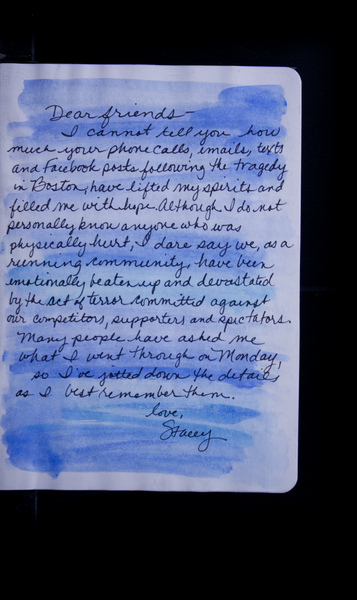 Dear friends—
I cannot tell you how
much your phone calls, emails, texts
and Facebook posts following the tragedy
in Boston, have lifted my spirits and
filled me with hope. Although I do not
personally know anyone who was
physically hurt, I dare say we, as a
running community, have been
emotionally beaten up and devastated
by the act of terror committed against
our competitors, supporters and spectators.
Many people have asked me
what I went through on Monday,
so I've jotted down the details
as I best remember them.
love,
Stacey